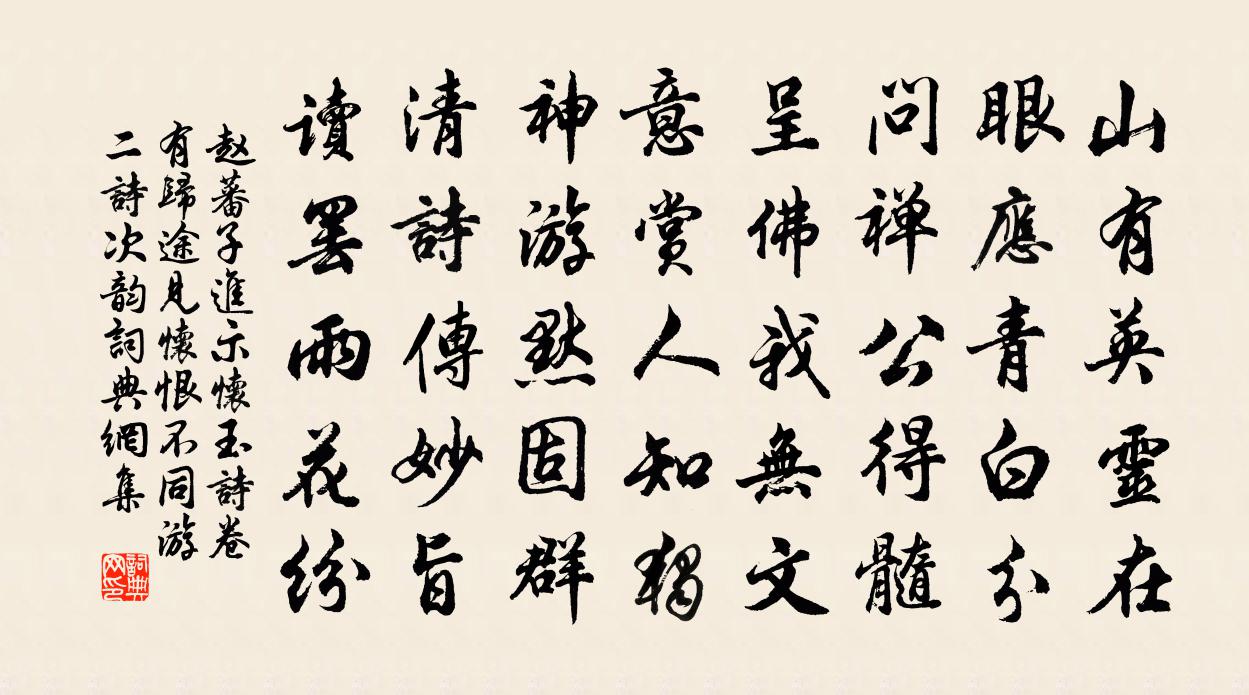 山有英靈在
眼應青白分
問禅公得髓
呈佛我無文
意賞人知獨
神游默固群
清詩傳妙旨
讀罢雨花纷
赵蕃子進示懷玉詩卷
有歸途見懷恨不同游
二詩次韵詞典網集
詞典网印